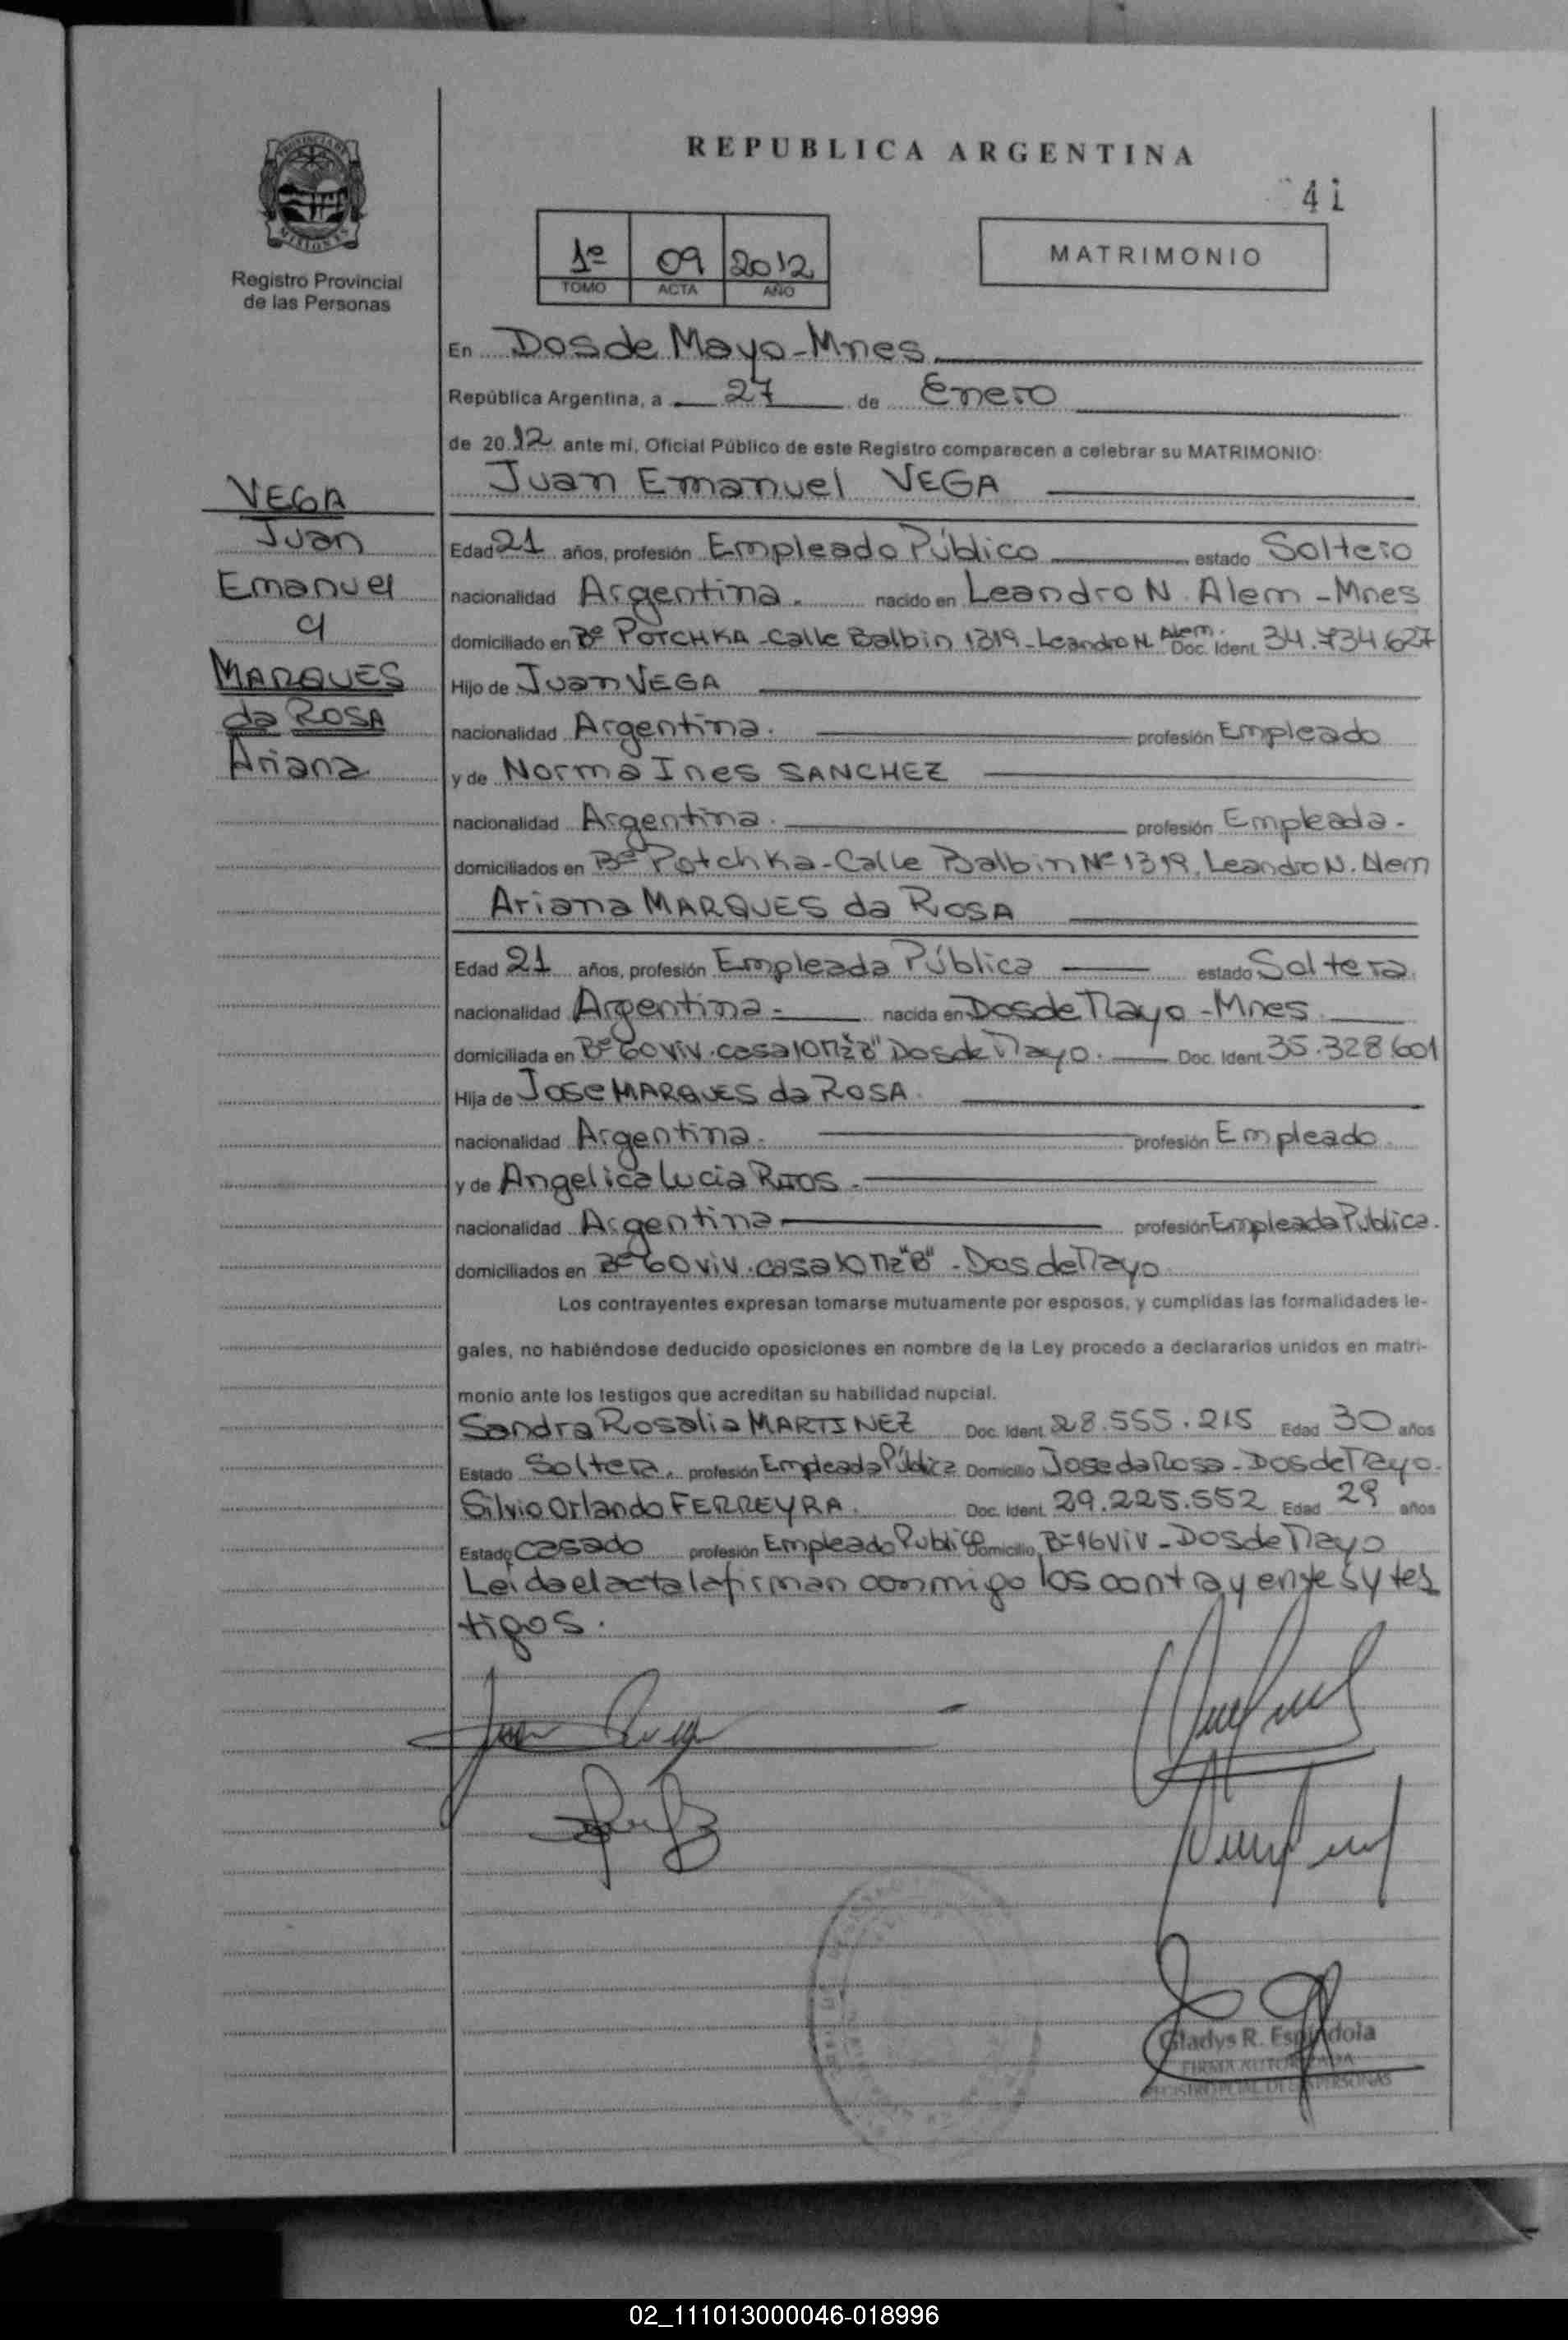 REPUBLICA ARGENTINA
41
PROVINCIA DE
MISIONES
Registro Provincial
de las Personas
1º 09 2012
TOMO ACTA AÑO
MATRIMONIO
En Dos de Mayo - Mnes
República Argentina, a 27 de Enero
de 2012 ante mí, Oficial Público de este Registro comparecen a celebrar su MATRIMONIO:
Juan Emanuel VEGA
VEGA
Juan
Emanuel
MARQUES
da ROSA
Ariana
Edad 21 años, profesión Empleado Público estado Soltero
nacionalidad Argentina. nacido en Leandro N. Alem - Mnes
domiciliado en Bº POTCHKA - Calle Balbin 1319 - Leandro N. Alem. Doc. Ident. 34.734.627
Hijo de Juan VEGA
nacionalidad Argentina. profesión Empleado
y de Norma Ines SANCHEZ
nacionalidad Argentina. profesión Empleada.
domiciliados en Bº Potchka - Calle Balbin Nº 1319, Leandro N. Alem
Ariana MARQUES da ROSA
Edad 21 años, profesión Empleada Pública estado Soltera
nacionalidad Argentina. nacida en Dos de Mayo - Mnes
domiciliada en Bº 60 viv. casa 10 Mz "B" Dos de Mayo. Doc. Ident. 35.328.601
Hija de Jose MARQUES da ROSA.
nacionalidad Argentina. profesión Empleado
y de Angelica Lucia
nacionalidad Argentina profesión Empleada Publica.
domiciliados en Bº 60 viv. casa 10 Mz "B" - Dos de Mayo
Los contrayentes expresan tomarse mutuamente por esposos, y cumplidas las formalidades le-
gales, no habiéndose deducido oposiciones en nombre de la Ley procedo a declararlos unidos en matri-
monio ante los testigos que acreditan su habilidad nupcial.
Sandra Rosalia MARTINEZ Doc. Ident. 28.555.215 Edad 30 años
Estado Soltera. profesión Empleada Pública Domicilio Jose da Rosa - Dos de Mayo.
Silvio Orlando FERREYRA. Doc. Ident. 29.225.552 Edad 29 años
Estado casado profesión Empleado Publico Domicilio Bº 16 Viv - Dos de Mayo
Leída el acta la firman conmigo los contrayentes y tes
tigos.
Gladys R. Espindola
FIRMA AUTORIZADA
REGISTRO PCIAL. DE LAS PERSONAS
02_111013000046-018996